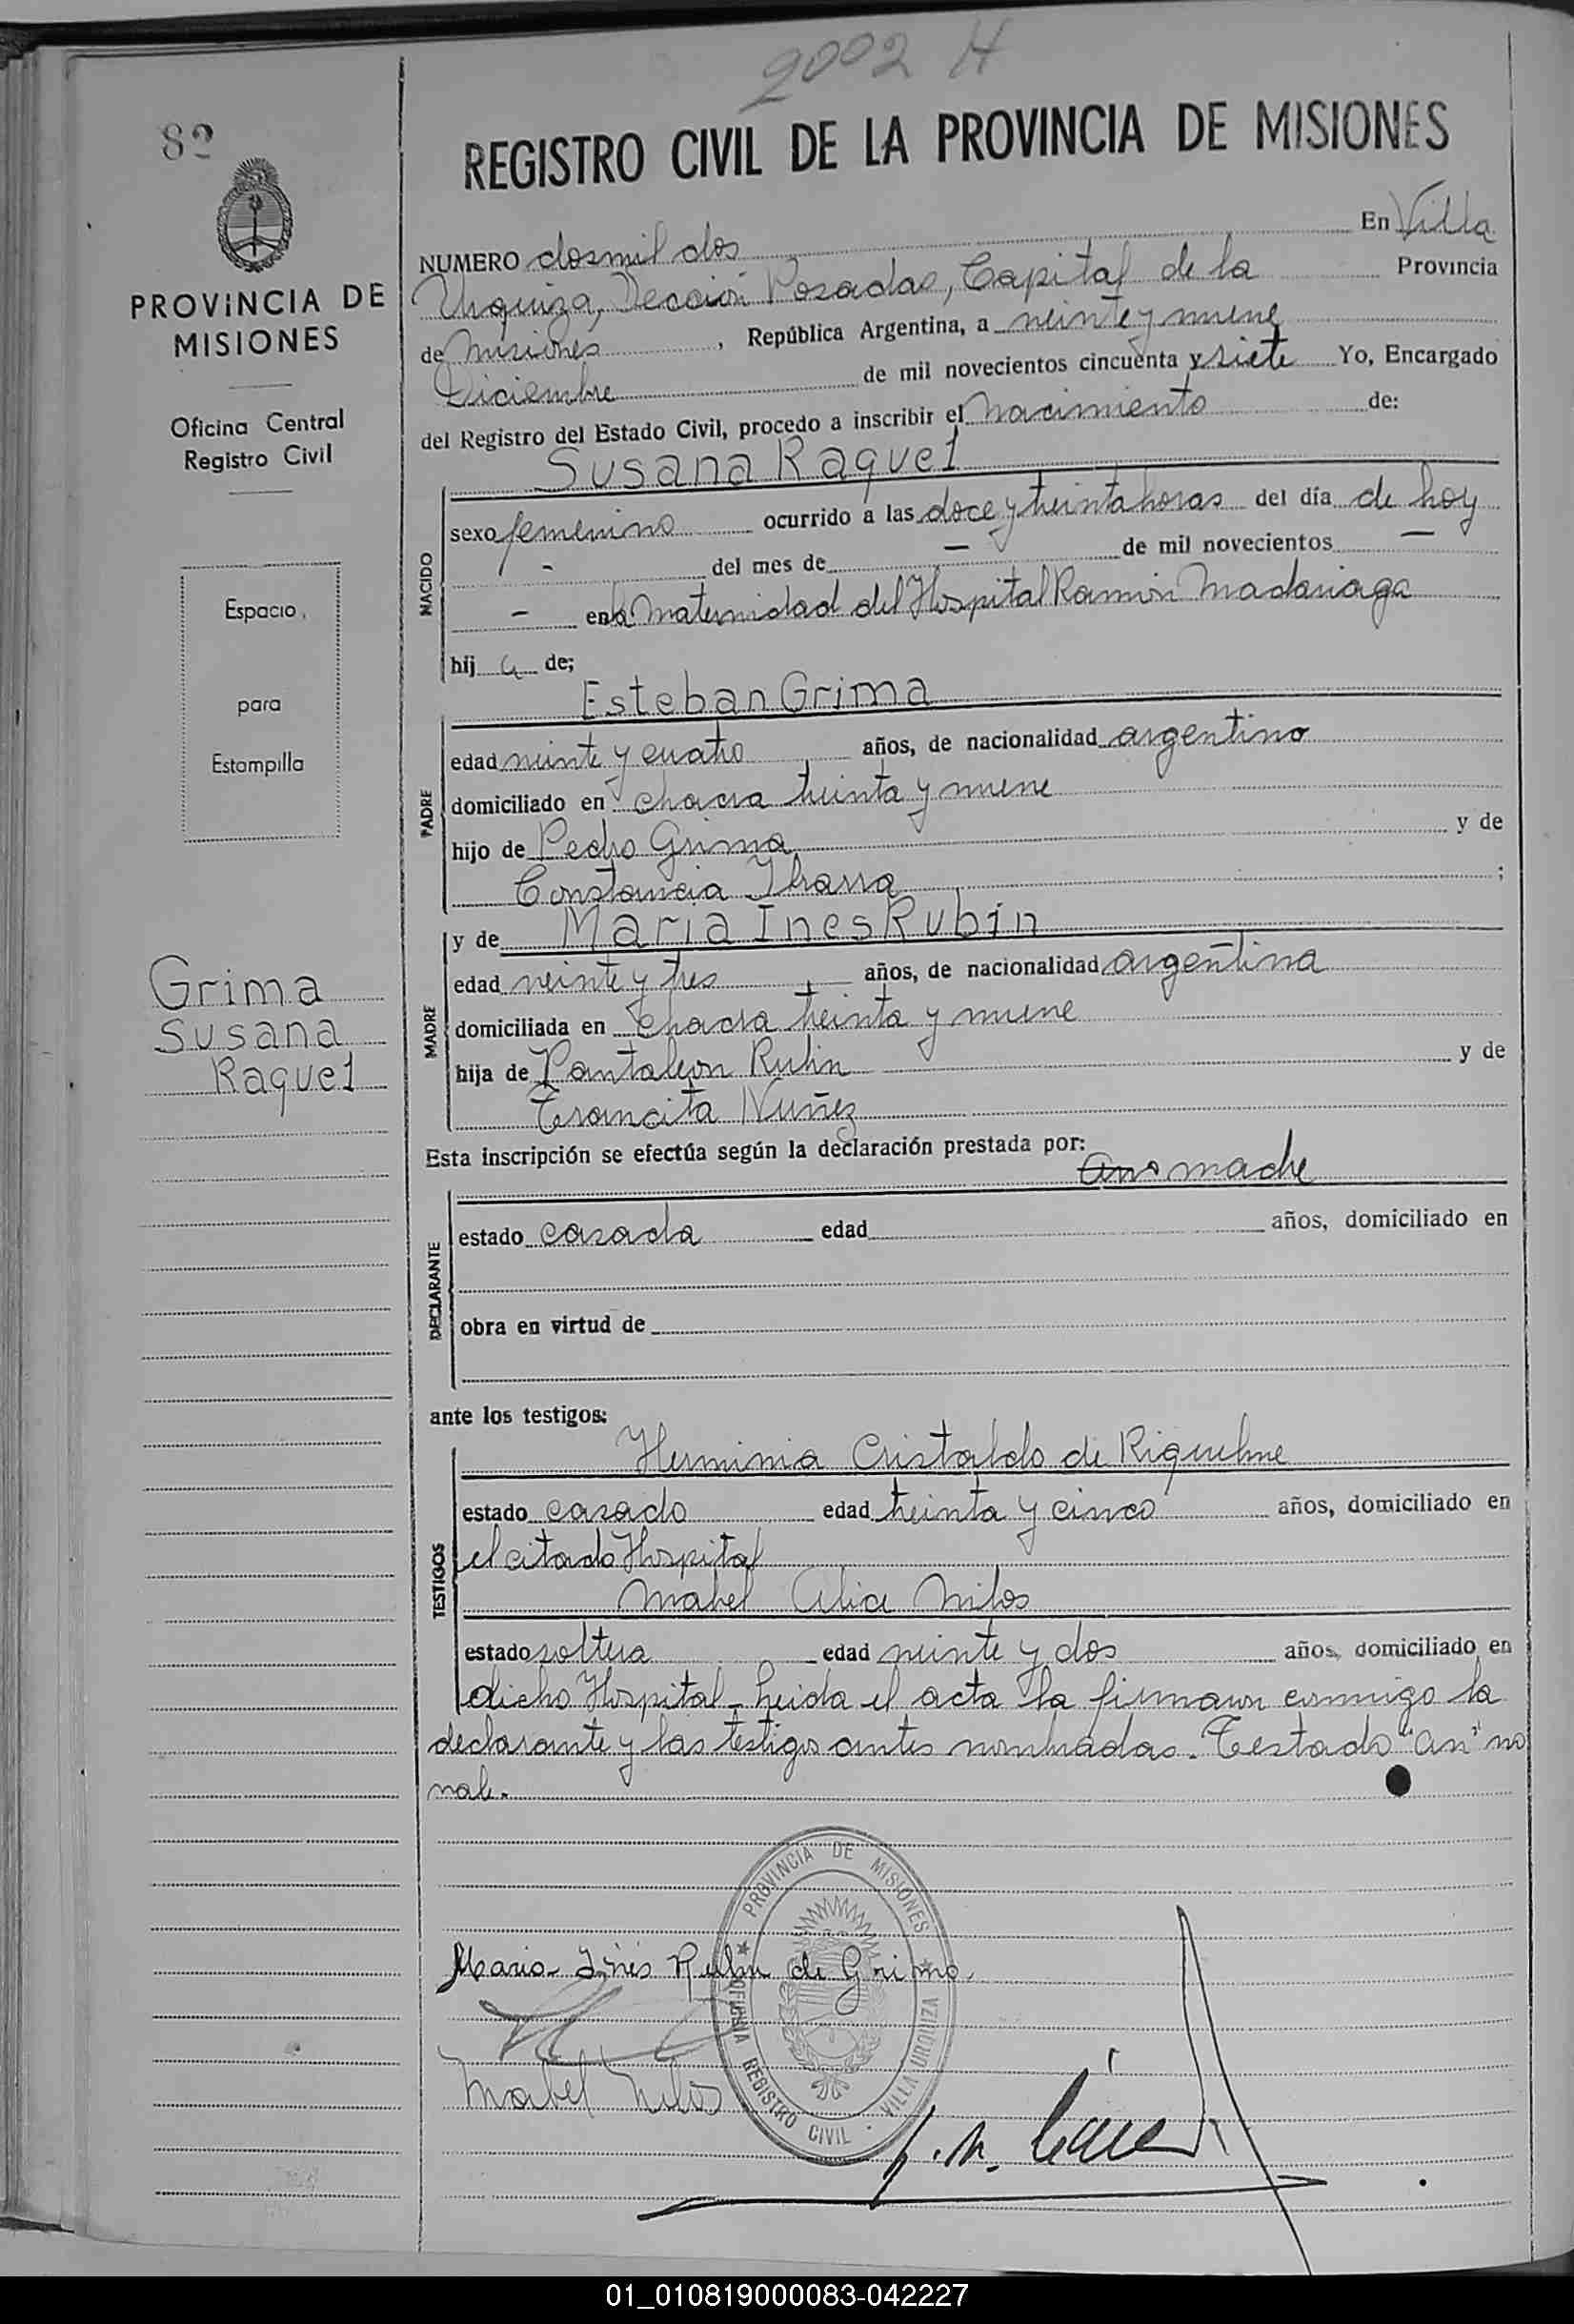 2002 H
82
REGISTRO CIVIL DE LA PROVINCIA DE MISIONES
PROVINCIA DE
MISIONES
Oficina Central
Registro Civil
Espacio
para
Estampilla
Grima
Susana
Raquel
NUMERO dosmil dos En Villa
Urquiza, Sección Posadas, Capital de la Provincia
de Misiones, República Argentina, a veinte y nueve
Diciembre de mil novecientos cincuenta y siete Yo, Encargado
del Registro del Estado Civil, procedo a inscribir el nacimiento de:
Susana Raquel
NACIDO
sexo femenino ocurrido a las doce y treinta horas del día de hoy
- del mes de - de mil novecientos -
- en la Maternidad del Hospital Ramón Madariaga
hij a de;
Esteban Grima
PADRE
edad veinte y cuatro años, de nacionalidad argentino
domiciliado en chacra treinta y nueve
hijo de Pedro Grima y de
Constancia Ibarra ;
y de Maria Ines Rubin
MADRE
edad veinte y tres años, de nacionalidad argentina
domiciliada en chacra treinta y nueve
hija de Pantaleon Rubin y de
Trancita Nuñez
Esta inscripción se efectúa según la declaración prestada por:
madre
DECLARANTE
estado casada edad años, domiciliado en
obra en virtud de
ante los testigos:
Herminia Cristaldo de Riquelme
TESTIGOS
estado casado edad treinta y cinco años, domiciliado en
el citado Hospital
Mabel Alice Milos
estado soltera edad veinte y dos años, domiciliado en
dicho Hospital - Leida el acta la firmaron conmigo la
declarante y las testigos antes nombradas. Testado "an" no
vale.
PROVINCIA DE MISIONES
OFICINA REGISTRO CIVIL · VILLA URQUIZA
Maria Inés Rubin de Grima
Mabel Milos
01_010819000083-042227